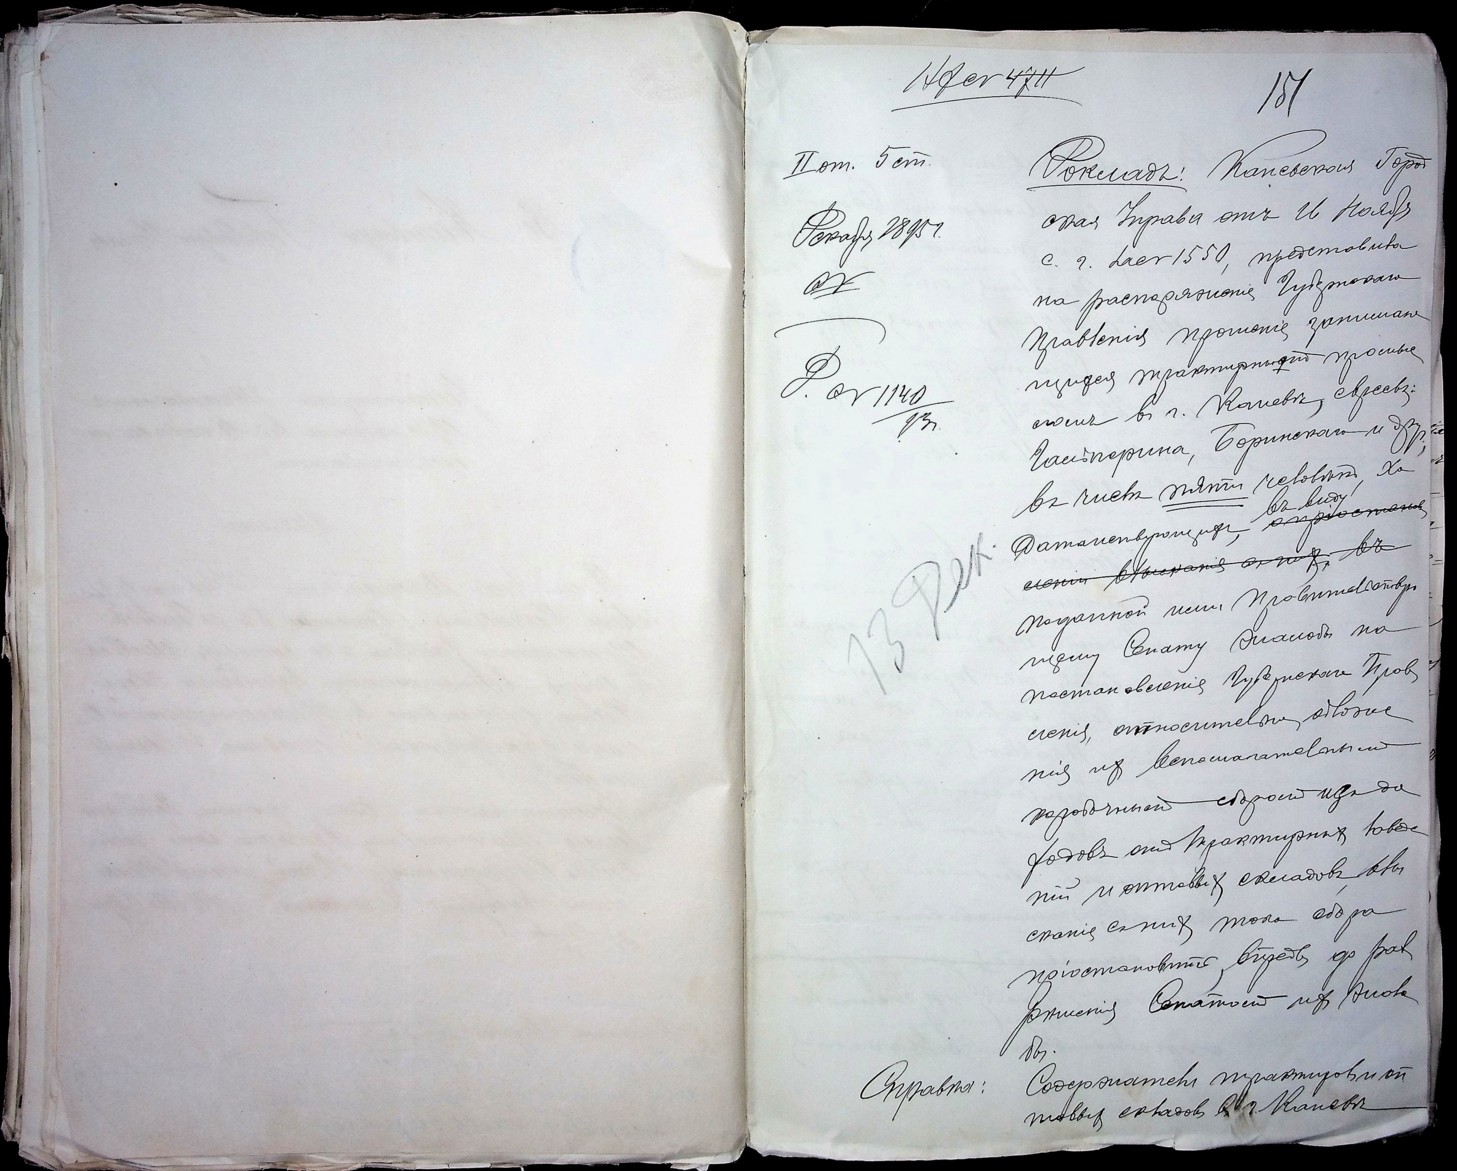 151
II от. 5 ст.
Декабря 1895 г.
Д. № 1140
93 г.
13 Дек.
Докладъ: Каневская Город
ская Управа отъ 16 Ноября
с. г. за № 1550, представила
на распоряженіе Губернскаго
Правленія прошеніе занимаю
щихся трактирнымъ промыс
ломъ въ г. Каневѣ, евреевъ:
Гальперина, Боринскаго и друг.,
въ числѣ пяти человѣкъ, хо
датайствующихъ, въ виду
поданной ими Правительствую
щему Сенату жалобы на
постановленіе Губернскаго Прав
ленія, относительно обложе
нія ихъ вспомогательнымъ
коробочнымъ сборомъ изъ до
ходовъ отъ трактирныхъ заведе
ній и оптовыхъ складовъ, взы
сканіе съ нихъ того сбора
пріостановить, впредь до раз
рѣшенія Сенатомъ ихъ жало
бы.
Справка: Содержатели трактировъ и оп
товыхъ складовъ въ г. Каневѣ